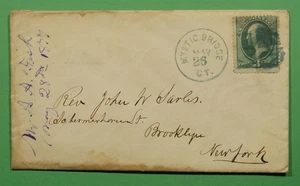 MYSTIC BRIDGE
MAY
26
CT.
Rev. John W Sarles.
Schermerhorn st.
Brooklyn
New York
May 28th